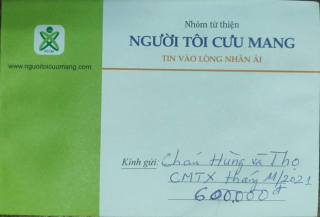 Nhóm từ thiện
NGƯỜI TÔI CƯU MANG
TIN VÀO LÒNG NHÂN ÁI
www.nguoitoicuumang.com
Kính gửi: Cháu Hùng và Thọ
CMTX tháng 11/2021
600.000đ